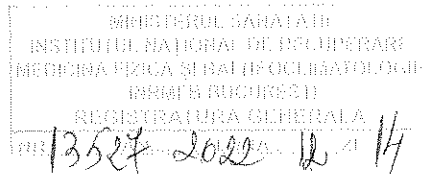 MINISTERUL SANATATII
INSTITUTUL NATIONAL DE RECUPERARE
MEDICINA FIZICA SI BALNEOCLIMATOLOGIE
INRMFB BUCURESTI
REGISTRATURA GENERALA
NR. 13527 2022 12 14